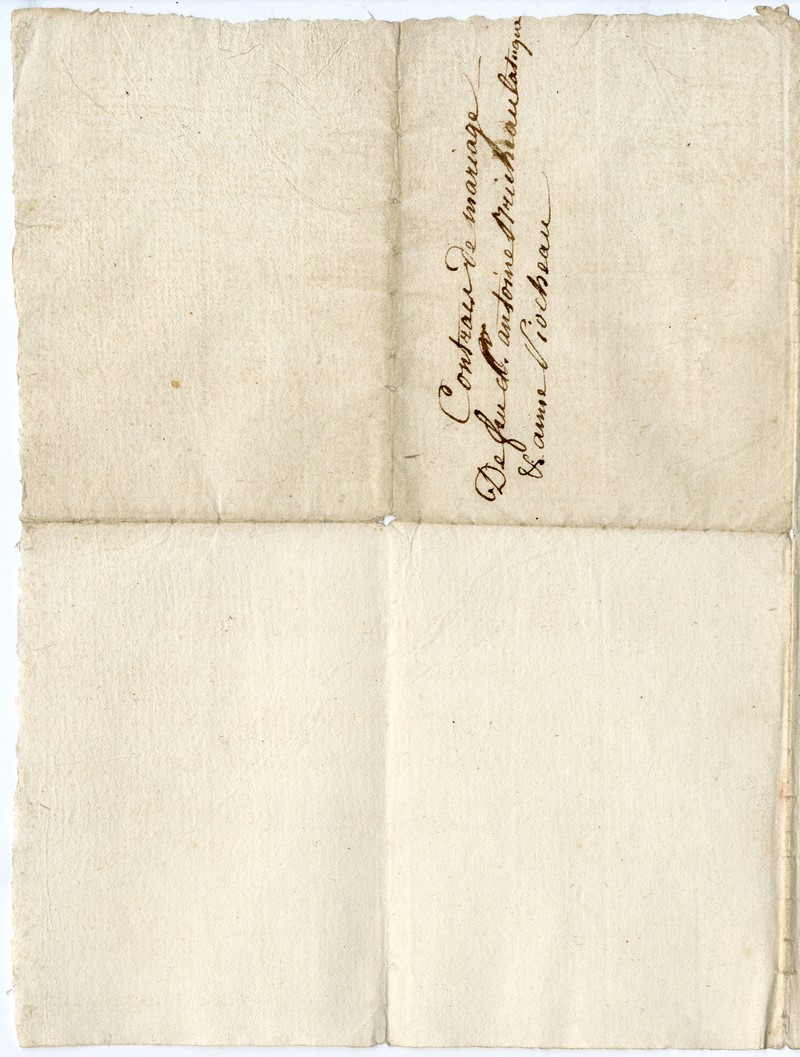 Contract de mariage
De feu Sr. antoine Bricheau latuque
& anne Piocheau